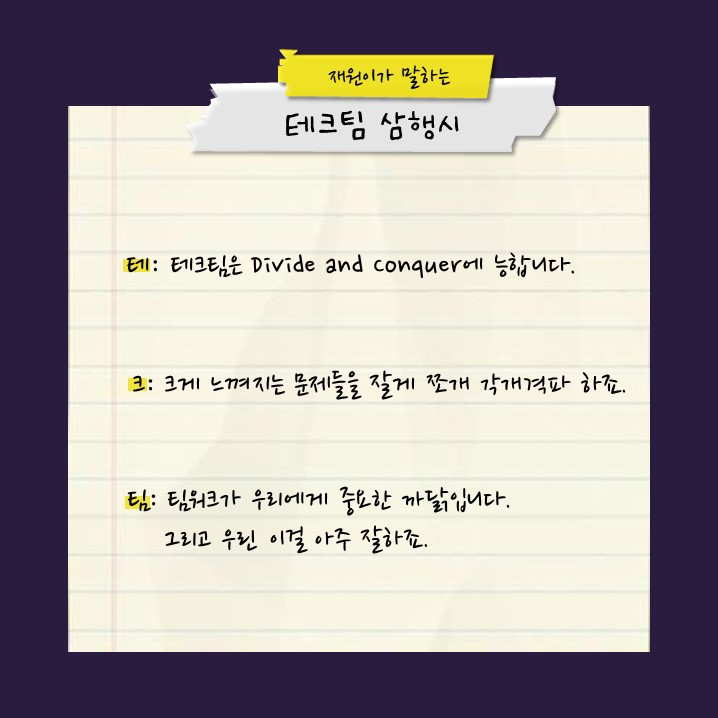 재원이가 말하는
테크팀 삼행시
테: 테크팀은 Divide and conquer에 능합니다.
크: 크게 느껴지는 문제들을 잘게 쪼개 각개격파 하죠.
팀: 팀워크가 우리에게 중요한 까닭입니다.
그리고 우린 이걸 아주 잘하죠.